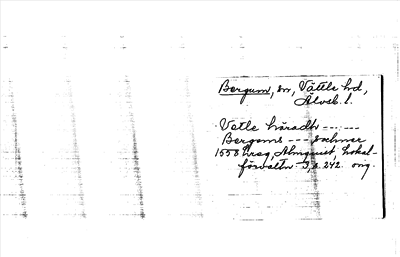 Bergum, sn, Vättle hd,
Älvsb. l.
Vetle häradh -----
Bergums ---- sochner
1550 hrsg, Almquist, Lokal-
förvaltn I, s. 242. orig.